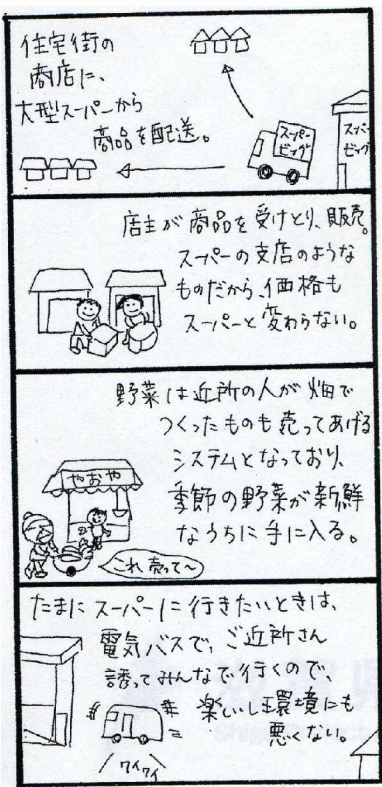 住宅街の
商店に、
大型スーパーから
商品を配送。
スーパー
ビッグ
スーパー
ビッグ
店主が商品を受けとり、販売。
スーパーの支店のような
ものだから、価格も
スーパーと変わらない。
野菜は近所の人が畑で
つくったものも売ってあげる
システムとなっており、
季節の野菜が新鮮
なうちに手に入る。
やおや
これ売って〜
たまにスーパーに行きたいときは、
電気バスで、ご近所さん
誘ってみんなで行くので、
楽しいし環境にも
悪くない。
ワイワイ